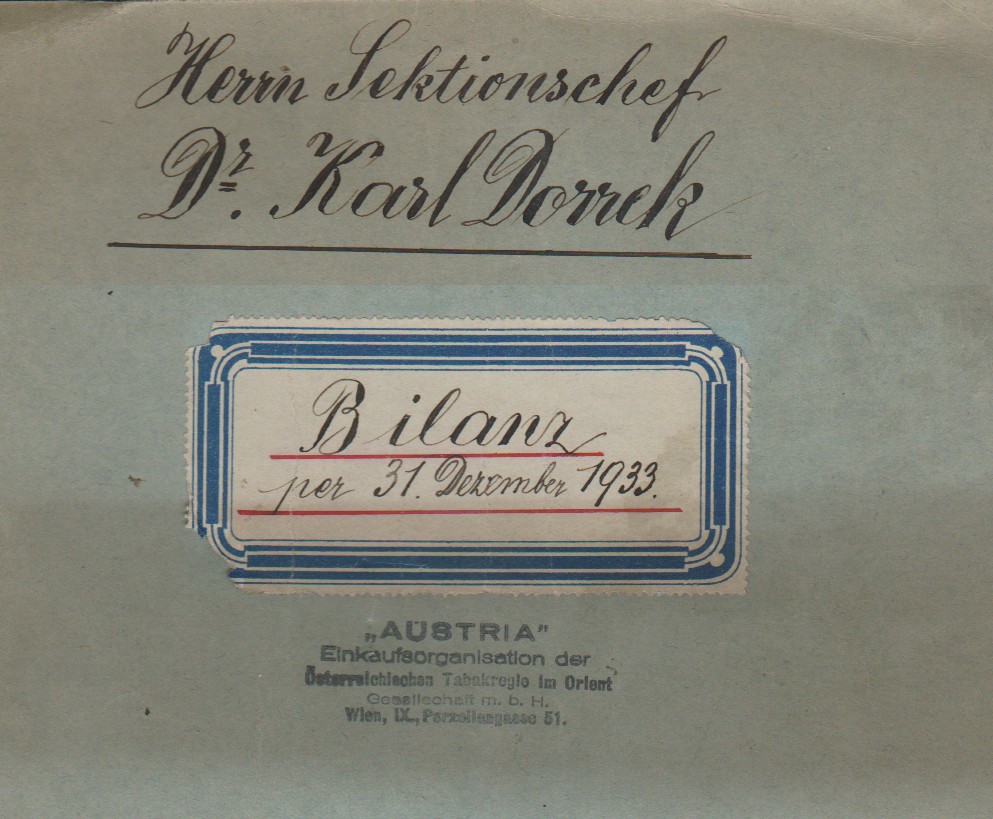 Herrn Sektionschef
Dr. Karl Dorrek
Bilanz
per 31. Dezember 1933.
„AUSTRIA"
Einkaufsorganisation der
Österreichischen Tabakregie im Orient
Gesellschaft m. b. H.
Wien, IX., Porzellangasse 51.